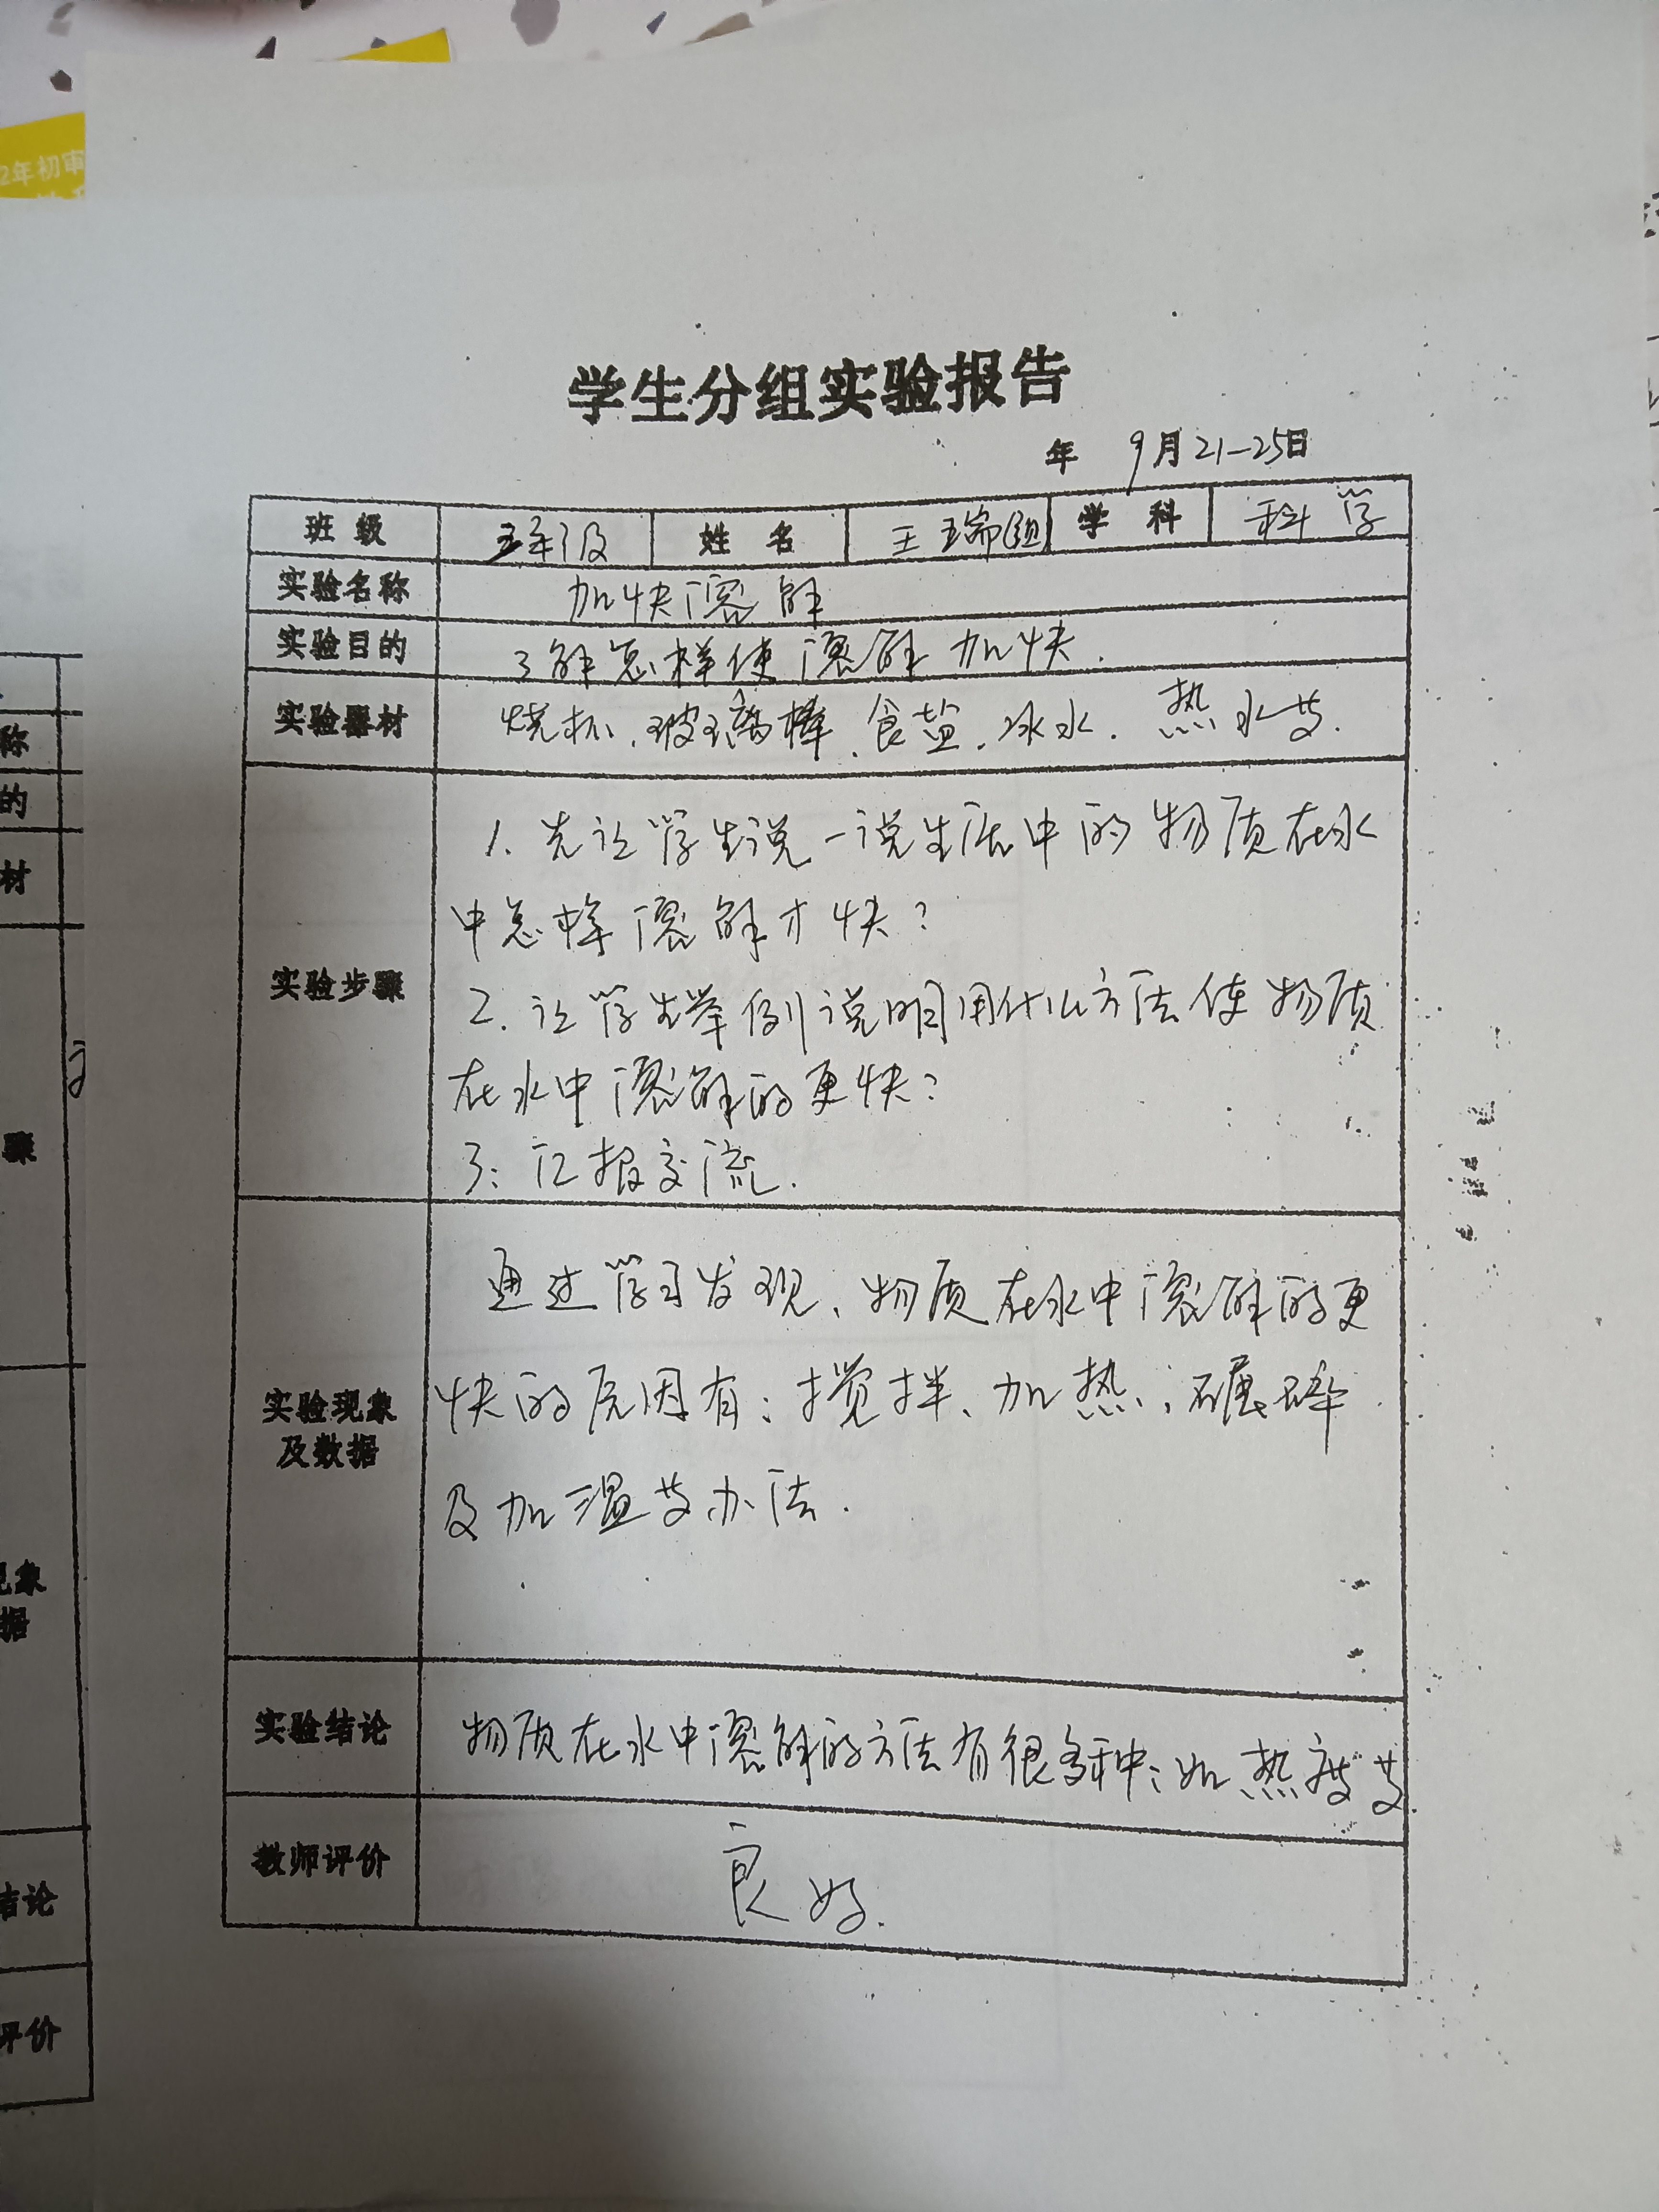 2年初审
学生分组实验报告
年 9月21-25日
班级 五年级 姓名 王瑞组 学科 科学
实验名称 加快溶解
实验目的 了解怎样使溶解加快.
实验器材 烧杯、玻璃棒、食盐、冰水、热水等.
实验步骤
1. 先让学生说一说生活中的物质在水
中怎样溶解才快?
2. 让学生举例说明用什么方法使物质
在水中溶解的更快?
3: 汇报交流.
实验现象
及数据
通过学习发现、物质在水中溶解的更
快的原因有: 搅拌、加热、碾碎
及加温等办法.
实验结论 物质在水中溶解的方法有很多种: 如热度等.
教师评价 良好.
称
的
材
骤
现象
据
结论
评价